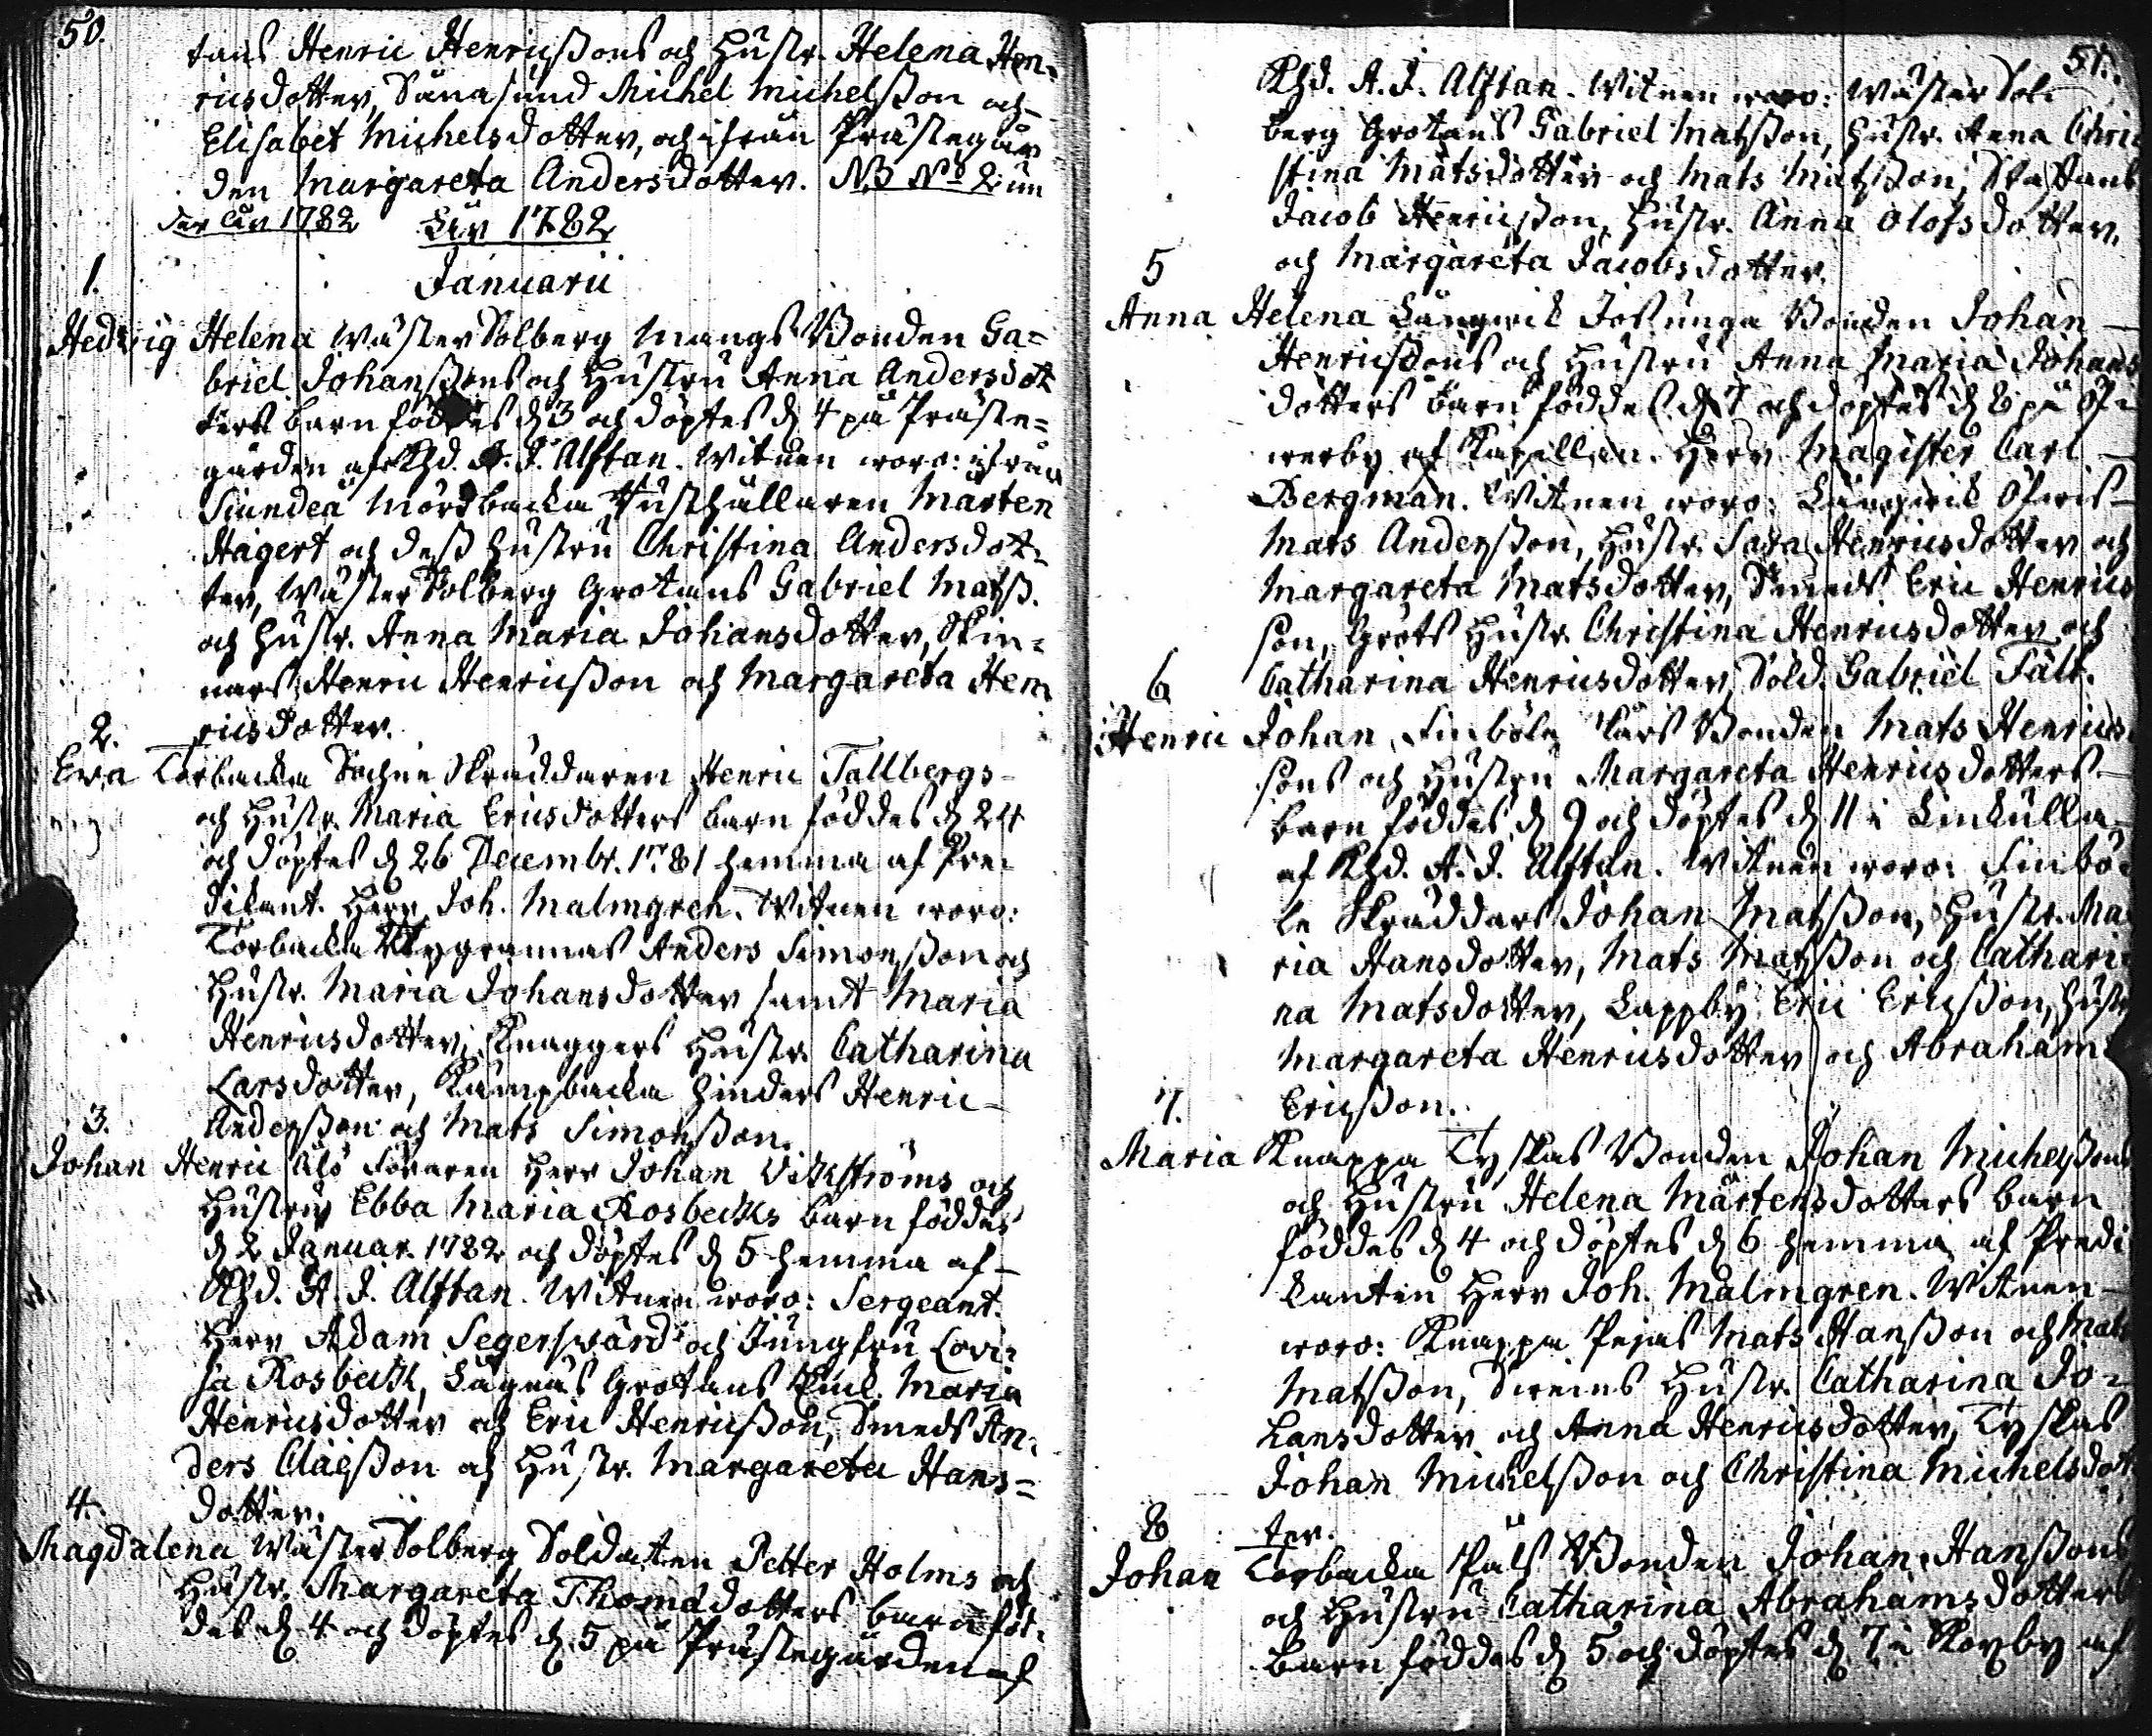 50.
tans Henric Henricßons och Hustr. Helena Hen-
ricsdotter, Sunasund Michel Michelßon och
Elisabet Michelsdotter, och ifrån Prästegår
den Margareta Andersdotter. NB No 2 un
der Año 1782 Año 1782
Januarii
1.
Hedvig Helena Wäster Solberg Mangs Bonden Ga-
briel Johanßons och Hustru Anna Andersdot
ters barn föddes d. 3 och döptes d. 4 på Präste-
gården af Khd. A. J. Alftan. Witnen woro: ifrån
Siundeå Mörsbacka Rusthållaren Mårten
Hägert och dess Hustru Christina Andersdot-
ter, Wäster Solberg Grotans Gabriel Matß.
och Hustr. Anna Maria Johansdotter, Skin-
nars Henric Henricßon och Margareta Hen
ricsdotter.
2.
Eva Torbacka Sochne Skräddaren Henric Tallbergs
och Hustr. Maria Ericsdotters barn föddes d. 24
och döptes d. 26 Decembr. 1781 hemma af Pre-
dikant. Herr Joh. Malmgren. Witnen woro:
Torbacka Anders Simonßon och
Hustr. Maria Johansdotter samt Maria
Henricsdotter, Knaggers Hustr. Catharina
Larsdotter, Kämpbacka Hinders Henric
Anderßon och Mats Simonßon.
3.
Johan Henric Älö Föraren Herr Johan Vikströms och
Hustru Ebba Maria Rosbecks barn föddes
d. 2 Januar. 1782 och döptes d. 5 hemma af
Khd. A. J. Alftan. Witnen woro: Sergeant.
Herr Adam Segersvärd och Jungfru Lovi-
sa Rosbeck, Lågnäs Grotans Maria
Henricsdotter och Eric Henricßon, Smeds An-
ders Claeßon och Hustr. Margareta Hans-
dotter.
4.
Magdalena Wäster Solberg Soldaten Petter Holms och
Hustr. Margareta Thomædotters barn föd-
des d. 4 och döptes d. 5 på Prästegården af
51.
Khd. A. J. Alftan. Witnen woro: Wäster Sol-
berg Grotans Gabriel Matßon, Hustr. Anna Chri
stina Matsdotter och Mats Matßon,
Jacob Henricßon, Hustr. Anna Olofsdotter,
och Margareta Jacobsdotter.
5
Anna Helena Långwik Bonden Johan
Henricßons och Hustru Anna Maria Johans
dotters barn föddes d. 7 och döptes d. 8 på Öf-
werby af Kapellan. Herr Magister Carl
Bergman. Witnen woro: Långwik Öfwis
Mats Anderßon, Hustr. Sara Henricsdotter och
Margareta Matsdotter, Smeds Eric Henrics
son, Gröts Hustr. Christina Henricsdotter och
Catharina Henricsdotter, Sold. Gabriel Fält.
6
Henric Johan, Finböle Lars Bonden Mats Henrics
sons och Hustru Margareta Henricsdotters
barn föddes d. 9 och döptes d. 11 i Linkulla
af Khd. A. J. Alftan. Witnen woro: Finbö-
le Skräddars Johan Matßon, Hustr. Ma
ria Hansdotter, Mats Matßon och Cathari
na Matsdotter, Lappby Eric Ericßon, Hustr
Margareta Henricsdotter och Abraham
Ericßon.
7.
Maria Knappa Tyskas Bonden Johan Michelßons
och Hustru Helena Mårtensdotters barn
föddes d. 4 och döptes d. 6 hemma af Predi
kanten Herr Joh. Malmgren. Witnen
woro: Knappa Pejas Mats Hanßon och Mats
Matßon, Hustr. Catharina Jo-
hansdotter och Anna Henricsdotter, Tyskas
Johan Michelßon och Christina Michelsdot
ter.
8
Johan Torbacka Påls Bonden Johan Hanßons
och Hustru Catharina Abrahamsdotters
barn föddes d. 5 och döptes d. 7 i Kerby af